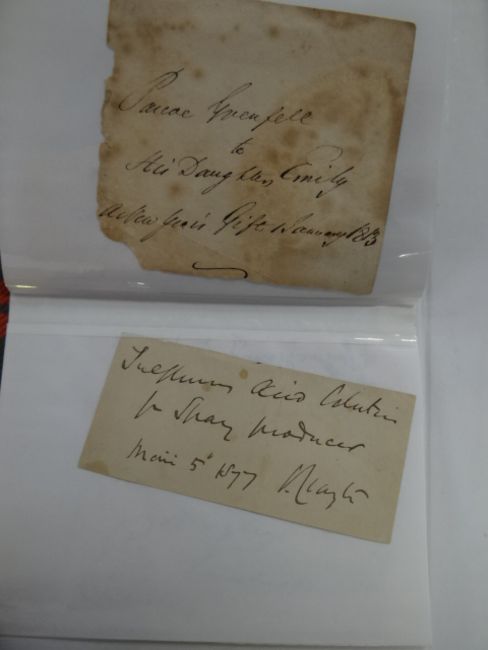 Pascoe Grenfell
to
His Daughter Emily
a New year's Gift January
Sulphurous Acid Solution
for Spray producer
5 1877